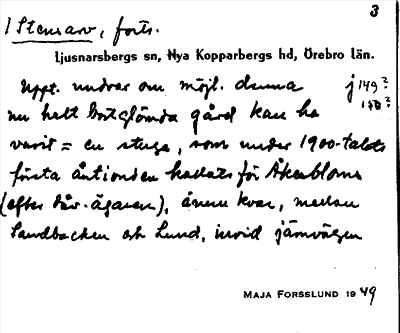 3
1 Stensarv, forts.
Ljusnarsbergs sn, Nya Kopparbergs hd, Örebro län.
Uppt. undrar om möjl. denna j 149?
nu helt bortglömda gård kan ha 150?
varit = en stuga, som under 1900-talets
första årtionden kallats för Åkerbloms
(efter dåv. ägaren), ännu kvar, mellan
Sandbacken och Lund, invid järnvägen
MAJA FORSSLUND 1949